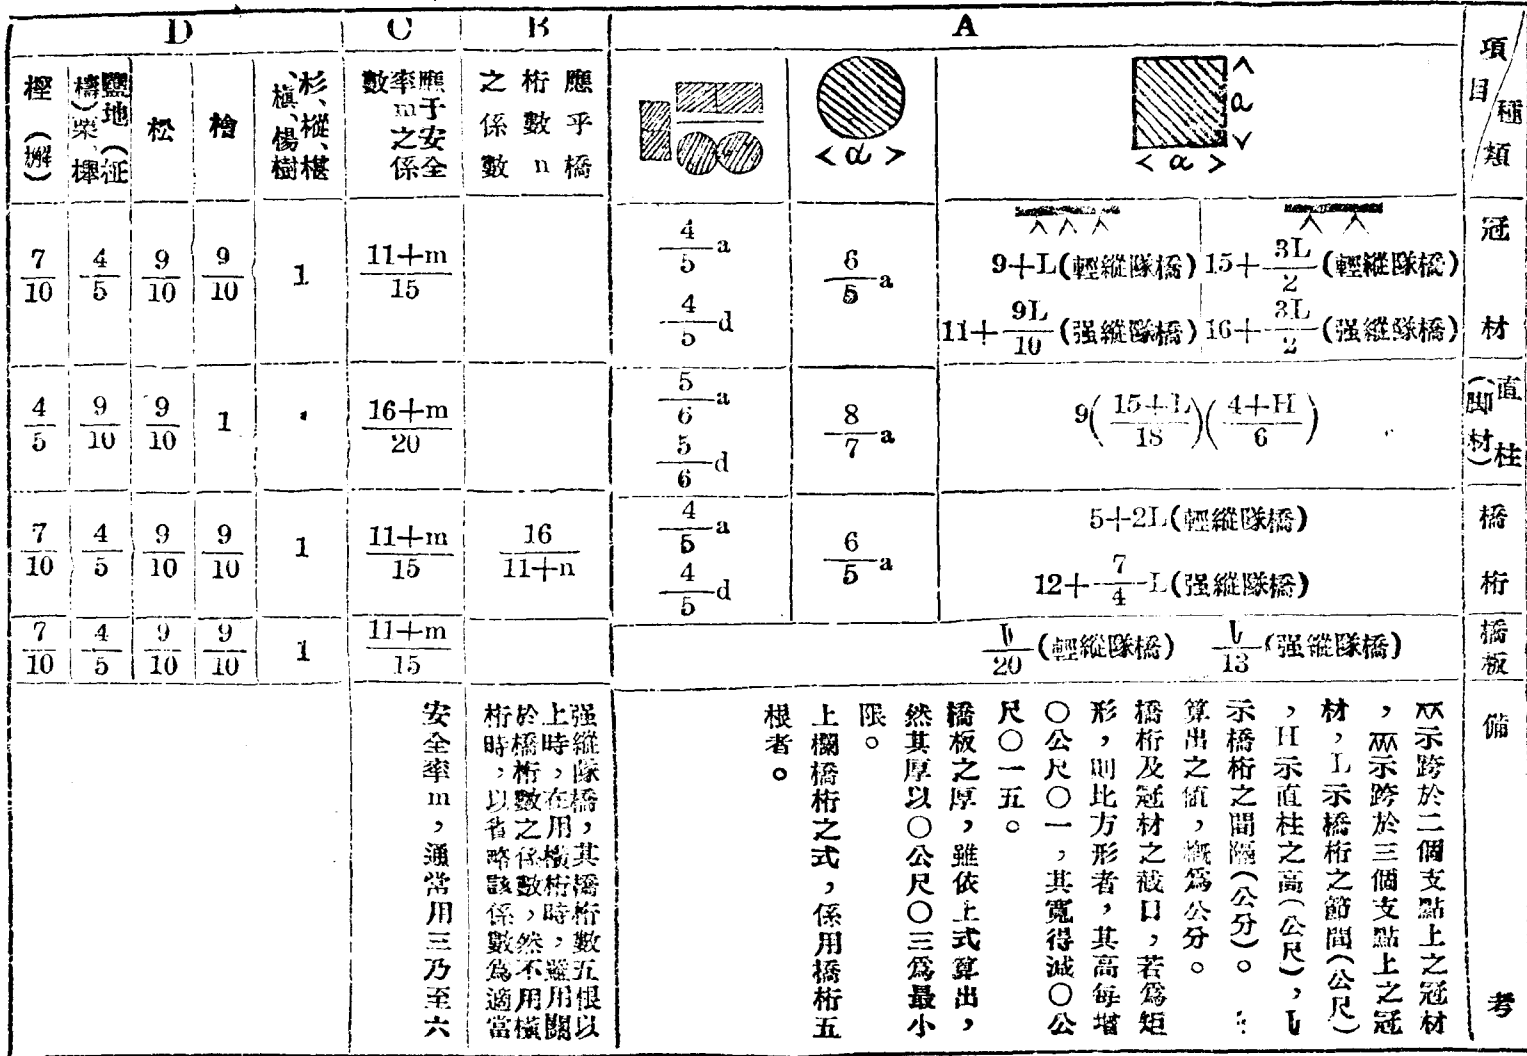 項目
種類
A
B
C
D
a
< a >
< d >
應乎橋
桁數n
之係數
應于安全
率m之係
數
杉、樅、椹
、槇、楊樹
檜
松
鹽地(柾
橋)栗、櫸
樫(檞)
冠材
9+L(輕縱隊橋)
15+3L/2(輕縱隊橋)
11+9L/10(强縱隊橋)
16+3L/2(强縱隊橋)
6/5 a
4/5 a
4/5 d
11+m/15
1
9/10
9/10
4/5
7/10
直柱
(脚材)
9(15+L/18)(4+H/6)
8/7 a
5/6 a
5/6 d
16+m/20
1
9/10
9/10
4/5
橋桁
5+2L(輕縱隊橋)
12+7/4 L(强縱隊橋)
6/5 a
4/5 a
4/5 d
16/11+n
11+m/15
1
9/10
9/10
4/5
7/10
橋板
/20(輕縱隊橋)
/13(强縱隊橋)
11+m/15
1
9/10
9/10
4/5
7/10
備考
示跨於二個支點上之冠材
,示跨於三個支點上之冠
材,L示橋桁之節間(公尺)
,H示直柱之高(公尺),
示橋桁之間隔(公分)。
算出之値,概爲公分。
橋桁及冠材之截口,若爲矩
形,則比方形者,其高每增
〇公尺〇一,其寬得減〇公
尺〇一五。
橋板之厚,雖依上式算出,
然其厚以〇公尺〇三爲最小
限。
上欄橋桁之式,係用橋桁五
根者。
强縱隊橋,其橋桁數五根以
上時,在用橫桁時,雖用關
於橋桁數之係數,然不用橫
桁時,以省略該係數爲適當
安全率m,通常用三乃至六